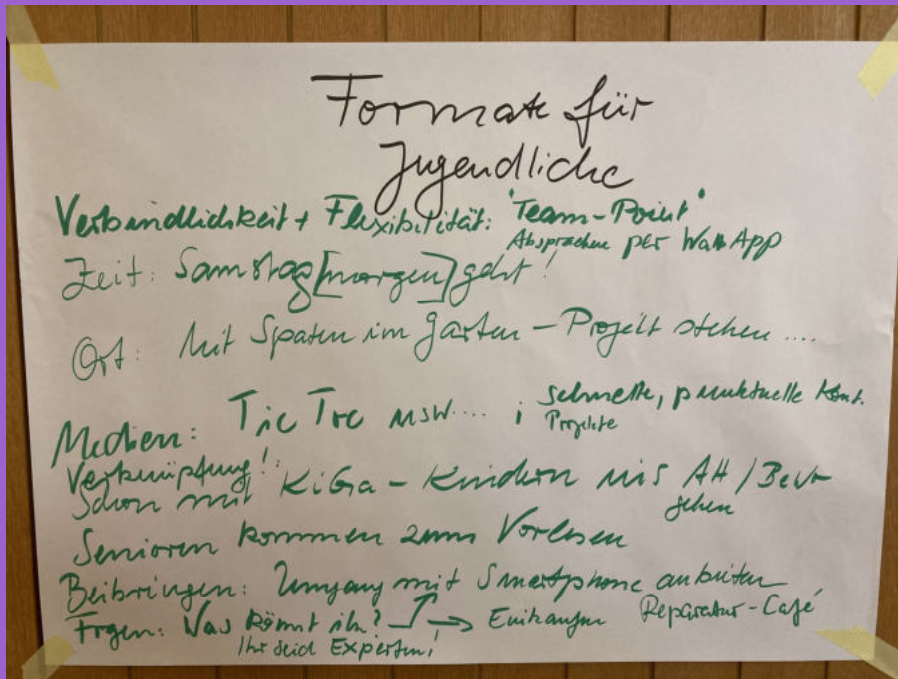 Formate für
Jugendliche
Verbindlichkeit + Flexibilität: "Team-Point"
Absprachen per WattsApp
Zeit: Samstag [morgen] geht!
Ort: Mit Spaten im Garten-Projekt stehen ....
Medien: Tic Toc usw.... ; schnelle, punktuelle Kont.
Projekte
Verknüpfung!:
Schon mit KiGa - Kindern ins AH /
gehen
Senioren kommen zum Vorlesen
Beibringen: Umgang mit Smartphone anbieten
Fragen: Was könnt ihr? → Einkaufen Reparatur-Café
Ihr seid Experten!